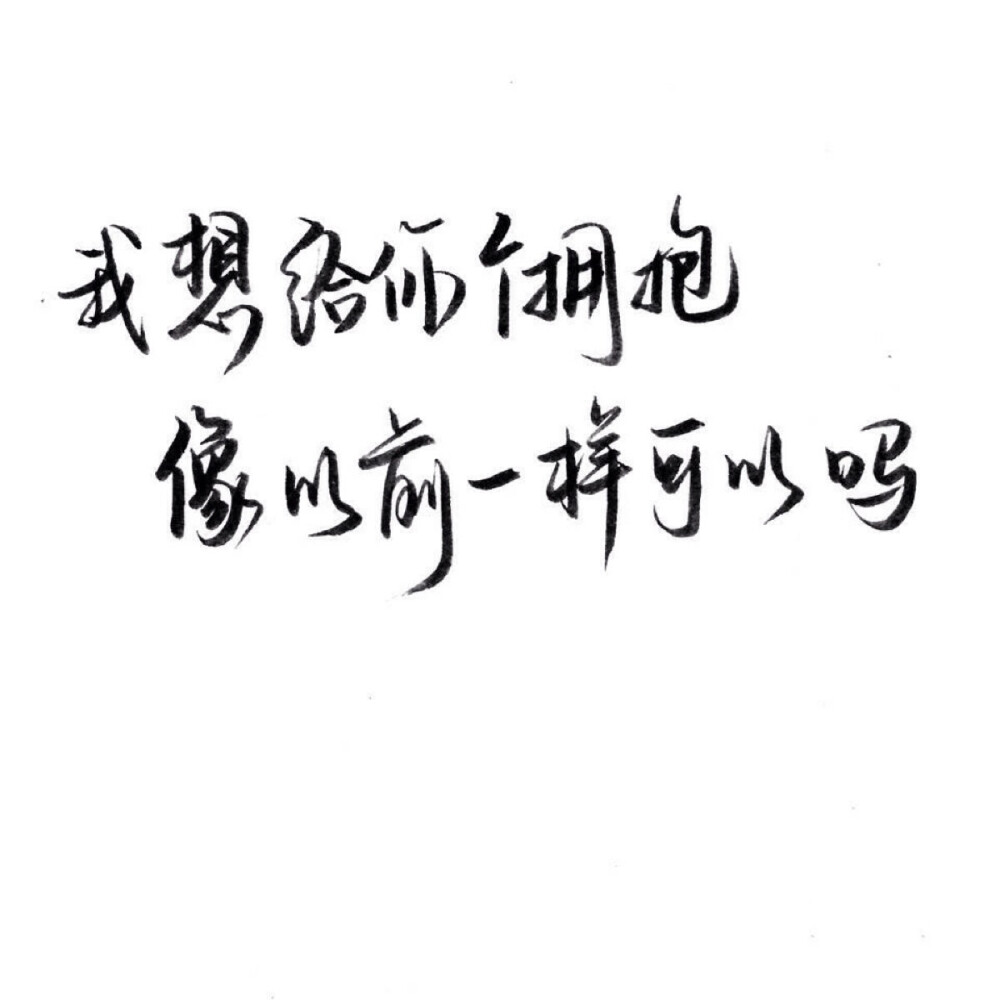 我想给你个拥抱
像以前一样可以吗